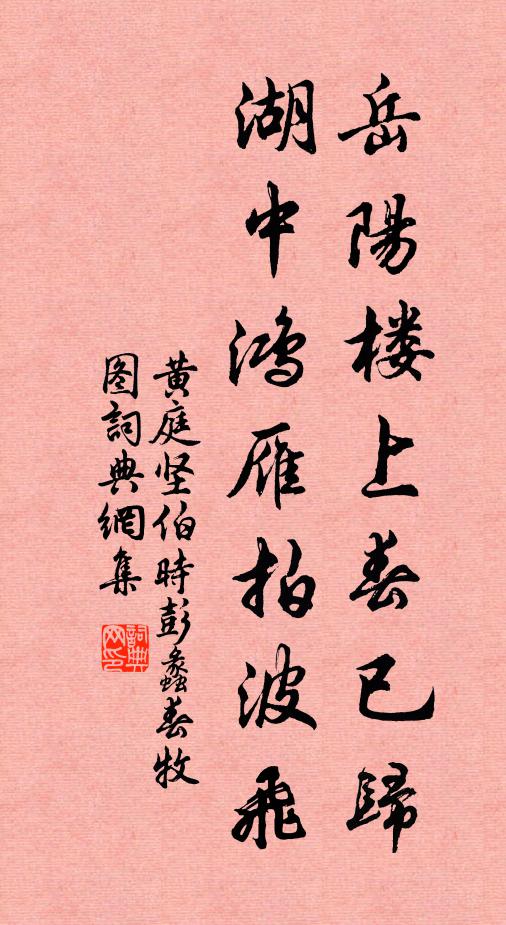 岳陽楼上春已歸
湖中鴻雁拍波飛
黄庭坚伯時彭蠡春牧
图詞典網集
詞典
网印